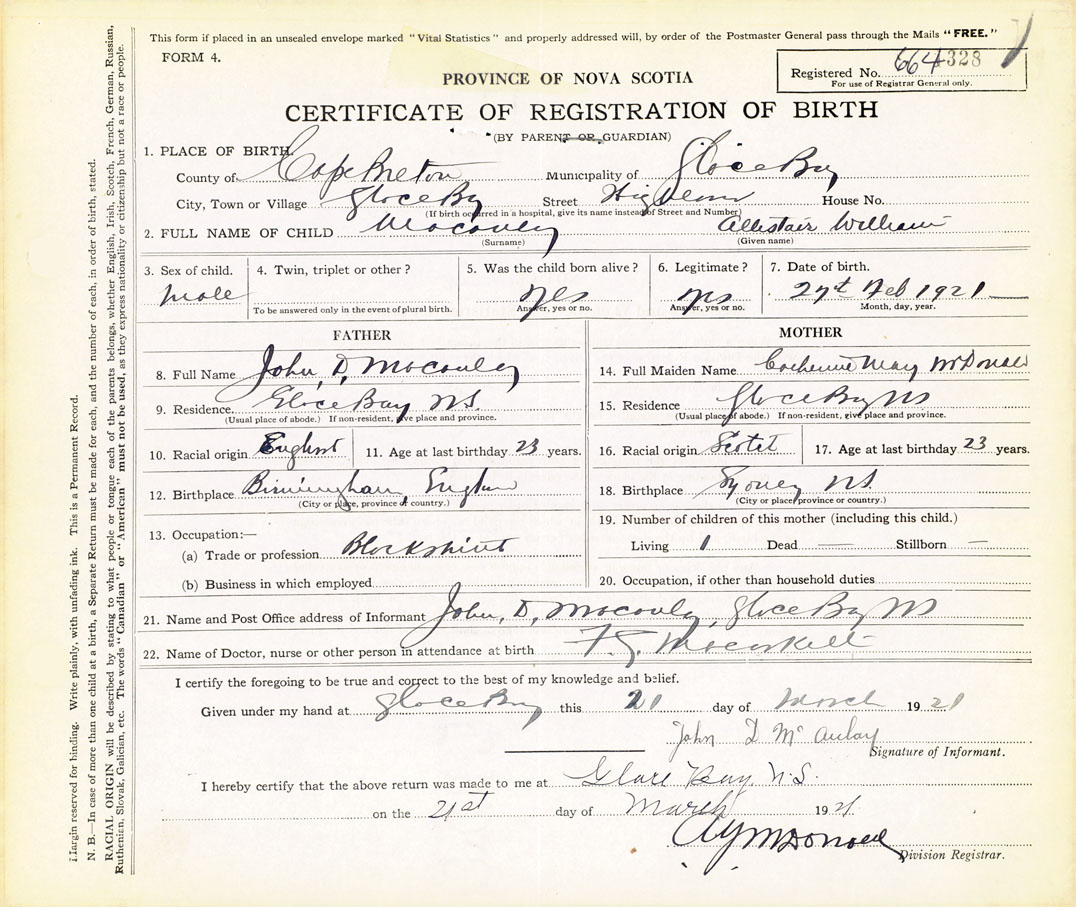 This form if placed in an unsealed envelope marked "Vital Statistics" and properly addressed will, by order of the Postmaster General pass through the Mails "FREE."
FORM 4.
Registered No. 664328
For use of Registrar General only.
PROVINCE OF NOVA SCOTIA
CERTIFICATE OF REGISTRATION OF BIRTH
(BY PARENT OR GUARDIAN)
1. PLACE OF BIRTH.
County of Cape Breton Municipality of Glace Bay
City, Town or Village Glace Bay Street House No.
(If birth occurred in a hospital, give its name instead of Street and Number)
2. FULL NAME OF CHILD Macauley Allistair William
(Surname) (Given name)
3. Sex of child. 4. Twin, triplet or other? 5. Was the child born alive? 6. Legitimate? 7. Date of birth.
Male Yes 27th Feb 1921
To be answered only in the event of plural birth. Answer, yes or no. Answer, yes or no. Month, day, year.
FATHER
8. Full Name John, D, Macauley
9. Residence Glace Bay NS
(Usual place of abode.) If non-resident, give place and province.
10. Racial origin 11. Age at last birthday 23 years.
12. Birthplace Birmingham,
(City or place, province or country.)
13. Occupation:—
(a) Trade or profession
(b) Business in which employed
MOTHER
14. Full Maiden Name Catherine May McDonald
15. Residence Glace Bay NS
(Usual place of abode.) If non-resident, give place and province.
16. Racial origin 17. Age at last birthday 23 years.
18. Birthplace Sydney NS.
(City or place, province or country.)
19. Number of children of this mother (including this child.)
Living 1 Dead — Stillborn —
20. Occupation, if other than household duties
21. Name and Post Office address of Informant John, D, Macauley, Glace Bay NS
22. Name of Doctor, nurse or other person in attendance at birth
I certify the foregoing to be true and correct to the best of my knowledge and belief.
Given under my hand at Glace Bay this 21 day of March 1921
John D McAulay
Signature of Informant.
I hereby certify that the above return was made to me at Glace Bay N.S.
on the 21st day of March 1921
Division Registrar.
Margin reserved for binding. Write plainly, with unfading ink. This is a Permanent Record.
N. B.—In case of more than one child at a birth, a Separate Return must be made for each, and the number of each, in order of birth, stated.
RACIAL ORIGIN will be described by stating to what people or tongue each of the parents belongs, whether English, Irish, Scotch, French, German, Russian,
Ruthenian, Slovak, Galician, etc. The words "Canadian" or "American" must not be used, as they express nationality or citizenship but not a race or people.